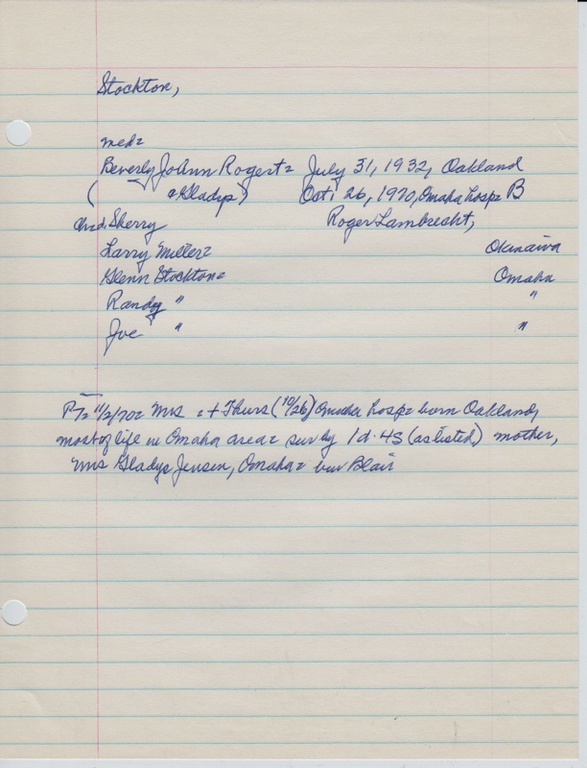 Stockton,
med=
Beverly JoAnn Rogert= July 31, 1932, Oakland
( Gladys) Oct. 26, 1970, Omaha hosp= B
chd. Sherry Roger Lambrecht,
Larry Miller= Okinawa
Glenn Stockton= Omaha
Randy " "
Joe " "
PT= 11/2/70= Mrs = + Thurs (10/26) Omaha hosp= born Oakland,
most of life in Omaha area= sur by 1 d. 4s (as listed) mother,
Mrs Gladys Jensen, Omaha= bur Blair